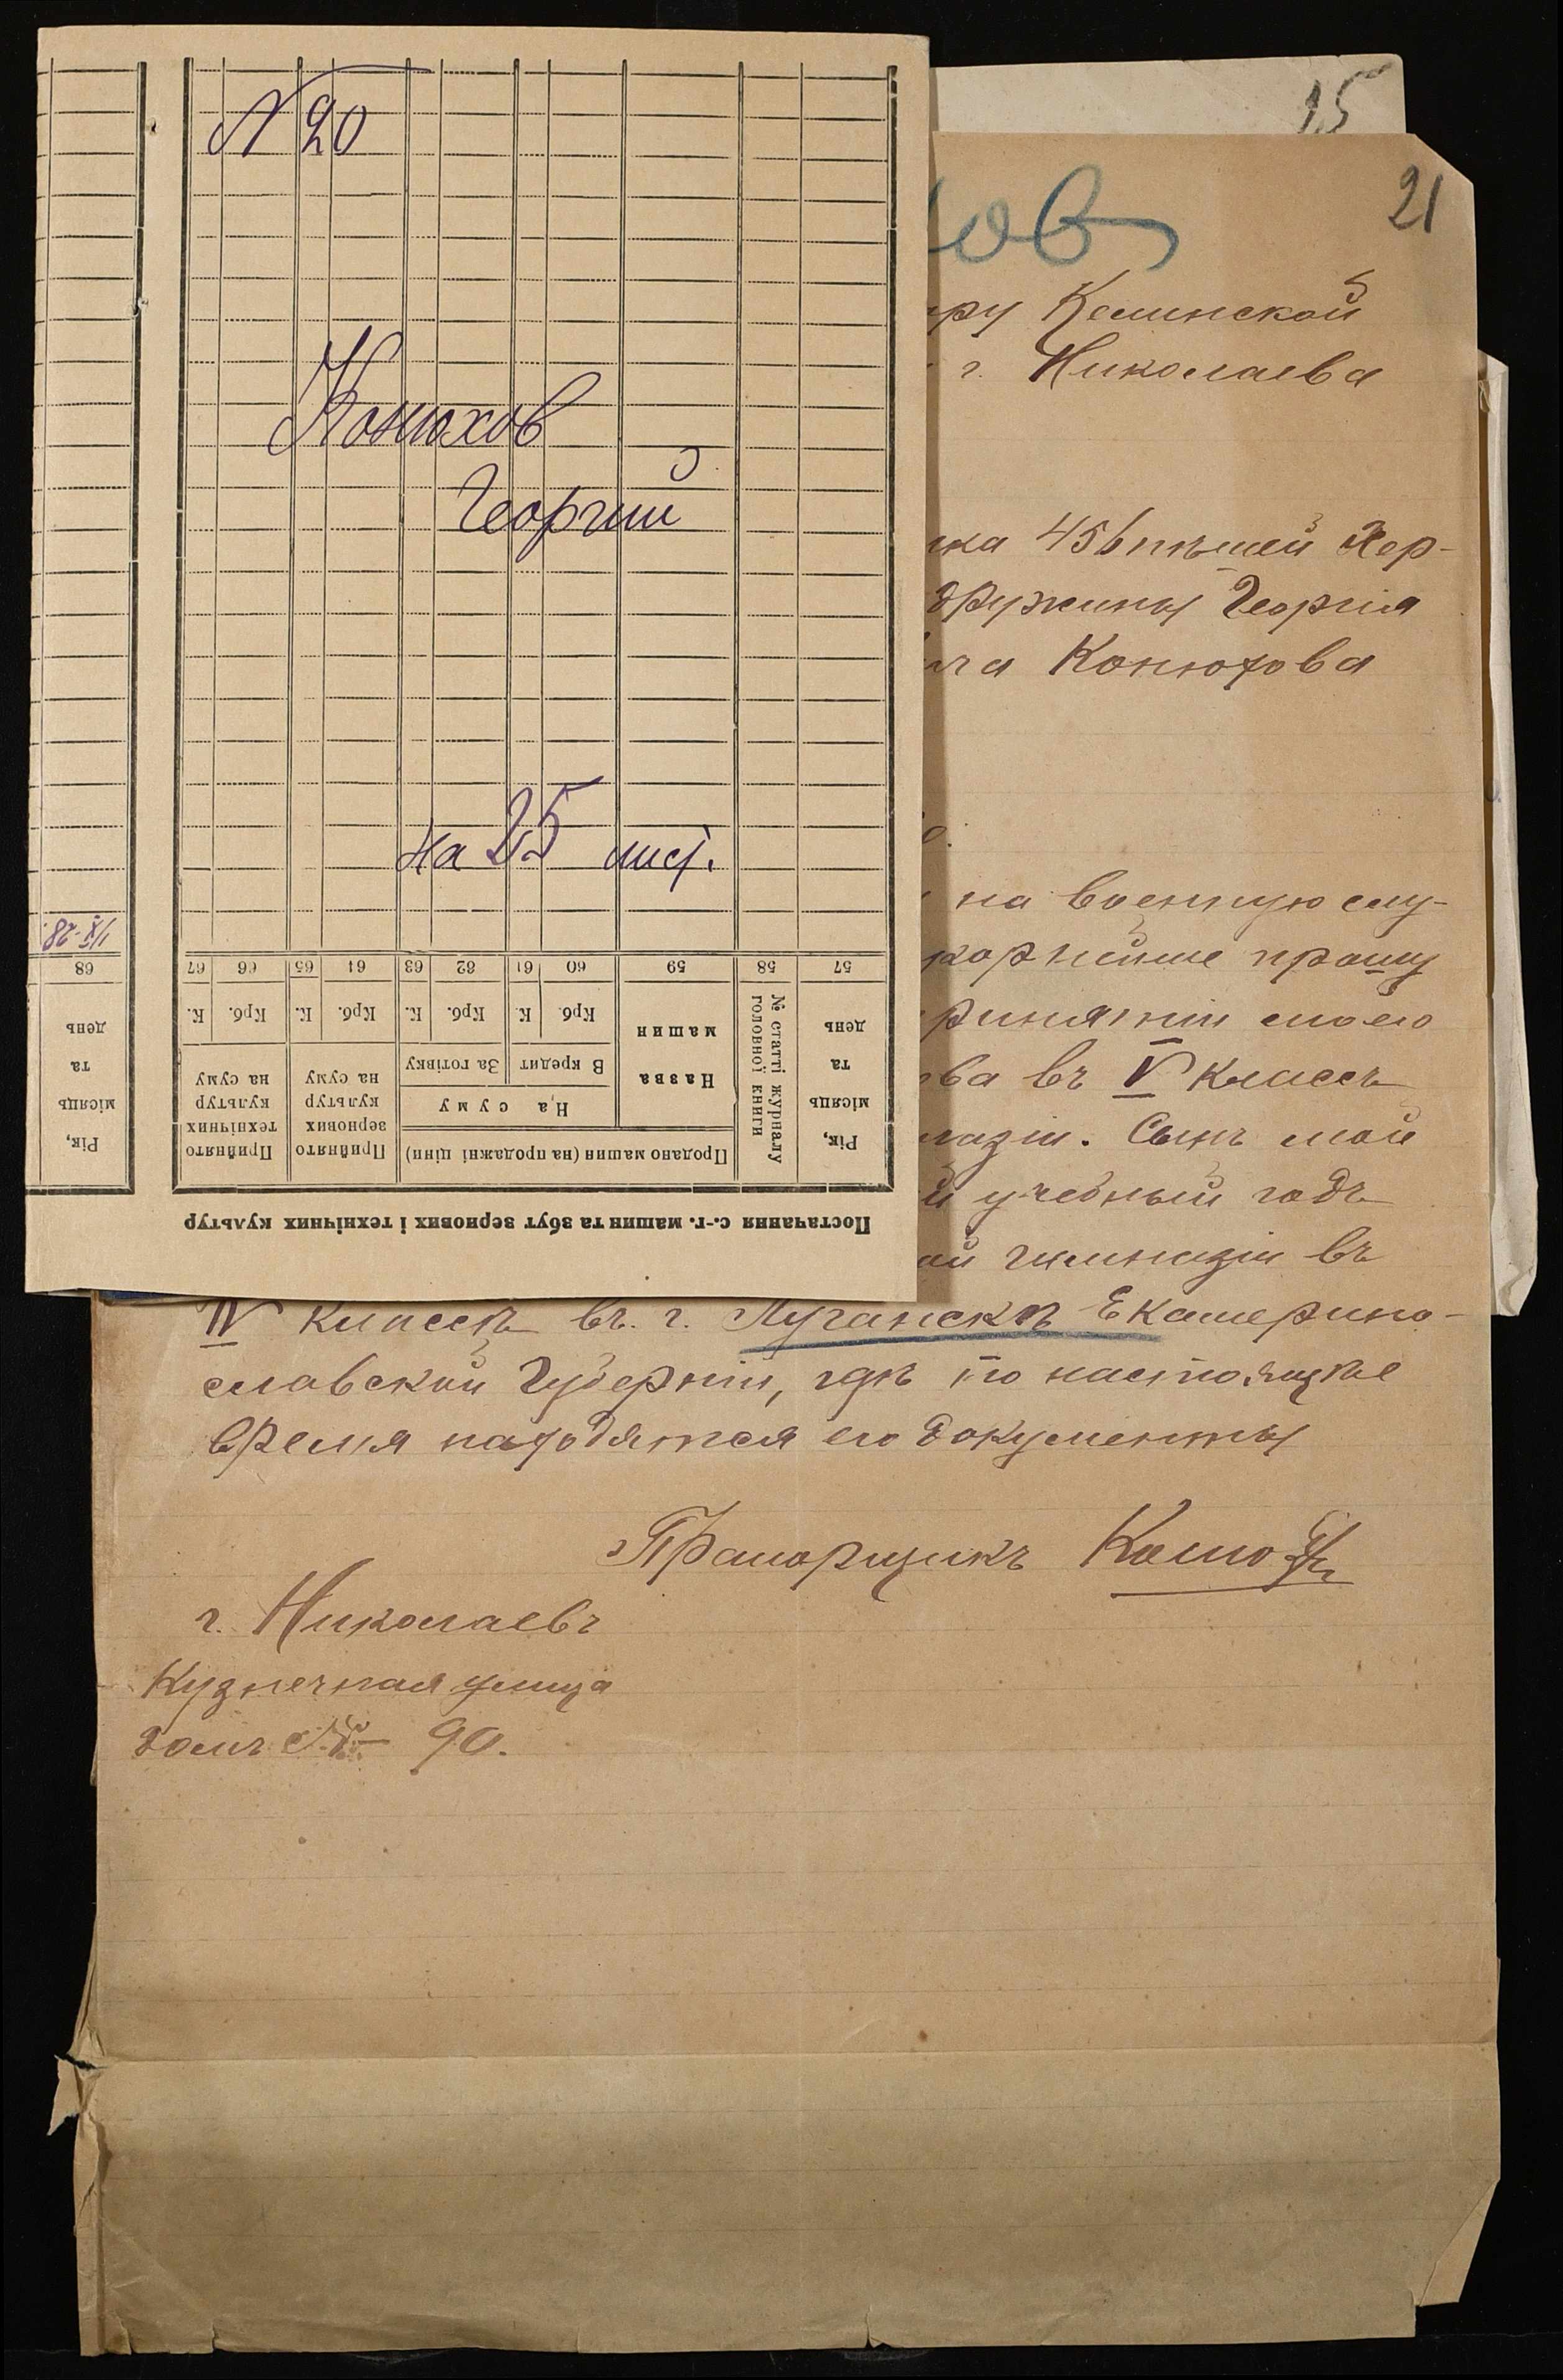 № 20
Конюхов
Георгий
на 25 лист.
1/X-28.
57 58 59 60 61 62 63 64 65 66 67
68
Рік, місяць та день
№ статті журналу головної книги
Продано машин (на продажні ціни)
Назва машин
На суму
В кредит За готівку
Крб. К. Крб. К.
Прийнято зернових культур на суму
Крб. К.
Прийнято технічних культур на суму
Крб. К.
Рік, місяць та день
Постачання с.-г. машин та збут зернових і технічних культур
15
21
ов
ру
г. Николаева
ка 456 пѣшей Хер-
дружины Георгія
ча Конюхова
на военную слу-
корнейше прошу
ринятіи моего
ва въ V классъ
назіи. Сынъ мой
й учебный годъ
ой гимназіи въ
IV классѣ въ г. Луганскѣ Екатерино-
славской Губерніи, гдѣ по настоящее
время находятся его документы
Прапорщикъ
г. Николаевъ
Кузнечная улица
домъ № 90.